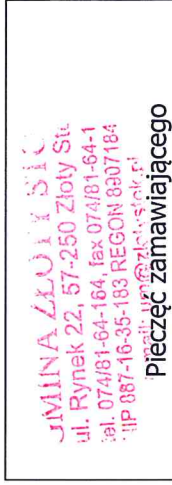 GMINA ZŁOTY STO
ul. Rynek 22, 57-250 Złoty Sto
tel. 074/81-64-164, fax 074/81-64-1
NIP 887-16-35-183 REGON 8907184
email: um@zlotystok.pl
Pieczęć zamawiającego